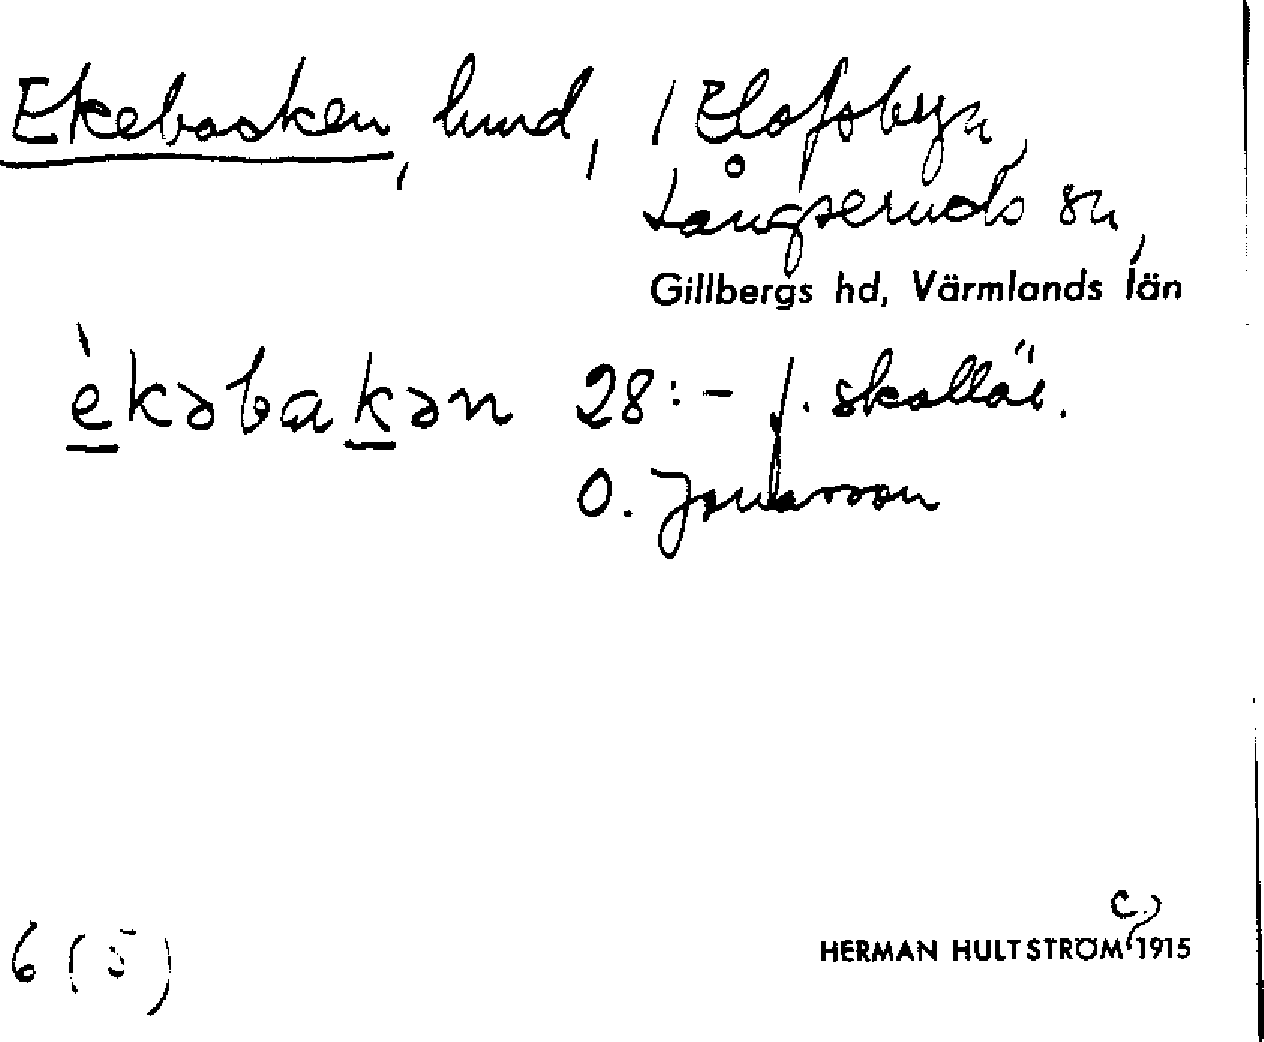 Ekebacken, lund, i Elofsbyn,
Långseruds sn,
Gillbergs hd, Värmlands län
èkəbakən 28:- f. skollär.
O. Jonasson
6 (5) HERMAN HULTSTRÖM c 1915